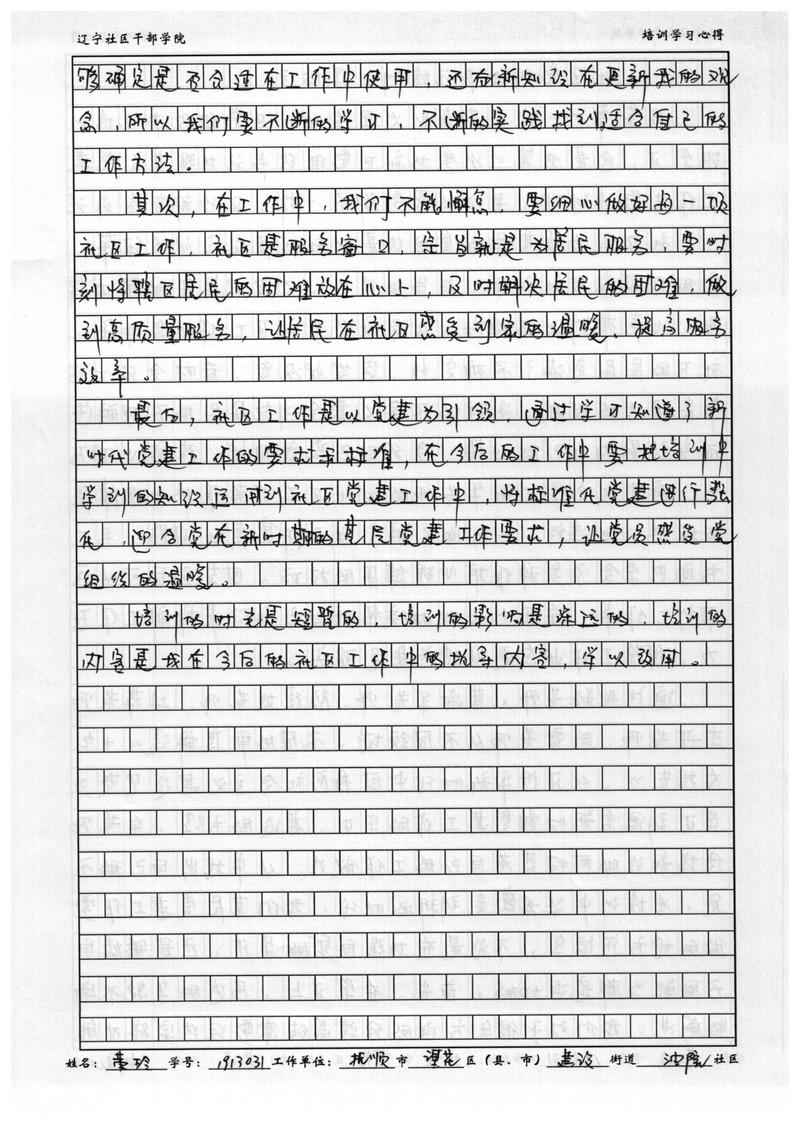 辽宁社区干部学院 培训学习心得
够确定是否合适在工作中使用，还有新知识在更新我的观
念，所以我们要不断的学习，不断的实践找到适合自己的
工作方法。
其次，在工作中，我们不能懈怠，要细心做好每一项
社区工作，社区是服务窗口，宗旨就是为居民服务，要时
刻将辖区居民的困难放在心上，及时解决居民的困难，做
到高质量服务，让居民在社区感受到家的温暖、提高服务
效率。
最后，社区工作是以党建为引领，通过学习知道了新
时代党建工作的要求与标准，在今后的工作中要把培训中
学到的知识运用到社区党建工作中，将标准化党建进行强
化，迎合党在新时期的基层党建工作要求，让党员感受党
组织的温暖。
培训的时光是短暂的，培训的影响是深远的，培训的
内容是我在今后的社区工作中的指导内容，学以致用。
姓名： 玲 学号：1913031 工作单位：抚顺 市 望花 区（县、市） 街道 社区